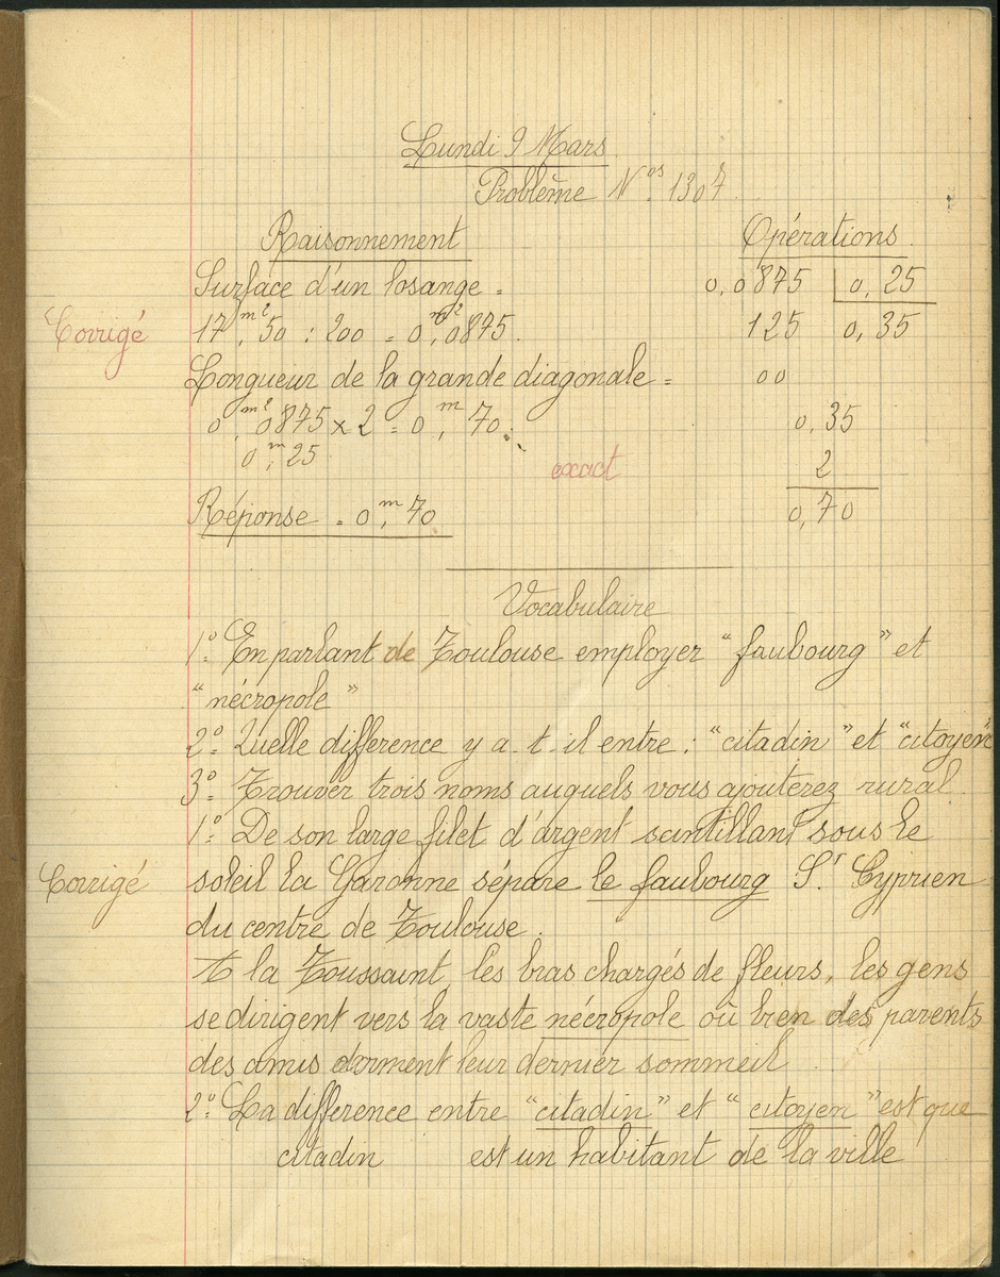 Lundi 9 Mars
Problème Nos. 1307
Raisonnement
Opérations.
Surface d'un losange.
0,0875 | 0,25
Corrigé
17m2,50 : 200 = 0m2,0875.
125 0,35
Longueur de la grande diagonale =
00
0m2,0875 x 2 = 0m,70.
0,35
0m,25
exact
2
Réponse = 0m,70
0,70
Vocabulaire
1º: En parlant de Toulouse employer "faubourg" et
"nécropole"
2º: Quelle difference y a-t-il entre: "citadin" et "citoyen
3º: Trouver trois noms auquels vous ajouterez rural.
1º: De son large filet d'argent scintillant sous le
Corrigé
soleil la Garonne sépare le faubourg St Cyprien
du centre de Toulouse.
A la Toussaint, les bras chargés de fleurs, les gens
se dirigent vers la vaste nécropole où bien des parents
des amis dorment leur dernier sommeil
2º: La difference entre "citadin" et "citoyen" est que
citadin est un habitant de la ville